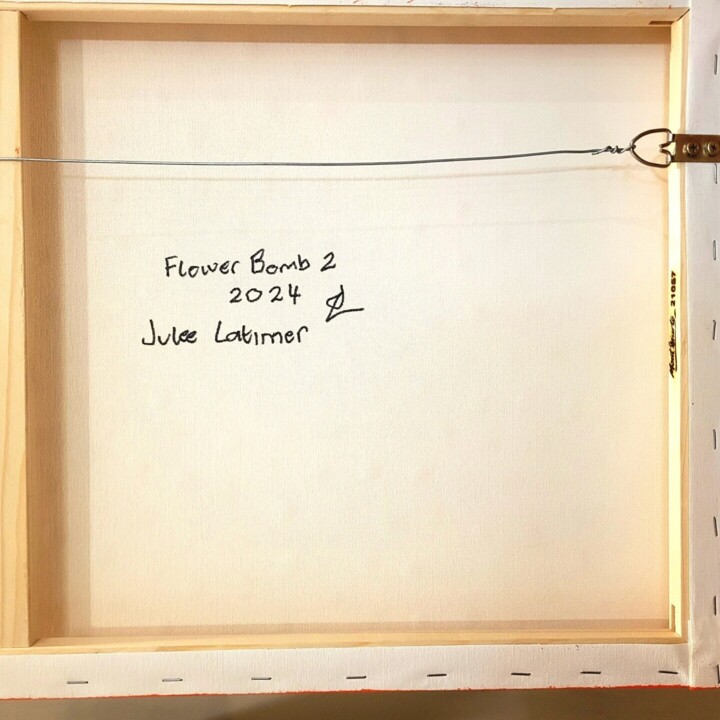 Flower Bomb 2
2024
Julee Latimer
21087